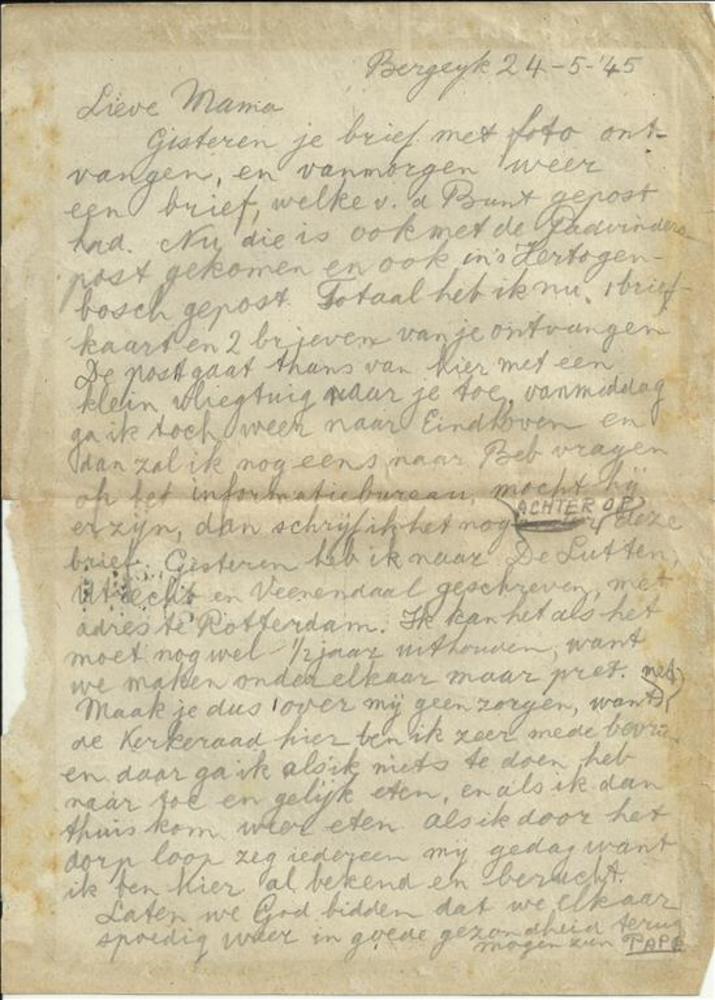 Bergeyk 24-5-'45
Lieve Mama
Gisteren je brief met foto ont-
vangen, en vanmorgen weer
een brief, welke v. d Bunt gepost
had. Nu die is ook met de Padvinders
post gekomen en ook in 's Hertogen-
bosch gepost. Totaal heb ik nu 1 brief-
kaart en 2 brieven van je ontvangen
De post gaat thans van hier met een
klein vliegtuig naar je toe, vanmiddag
ga ik toch weer naar Eindhoven en
dan zal ik nog eens naar Beb vragen
op het informatiebureau, mocht hij
er zijn, dan schrijf ik het nog ACHTER OP deze
brief. Gisteren heb ik naar De Lutten,
Utrecht en Veenendaal geschreven, met
adres te Rotterdam. Ik kan het als het
moet nog wel 1/2 jaar uithouden, want
we maken onder elkaar maar pret.
Maak je dus over mij geen zorgen, want
de Kerkeraad hier ben ik zeer mede
en daar ga ik als ik niets te doen heb
naar toe en gelijk eten, en als ik dan
thuis kom weer eten. als ik door het
dorp loop zeg iedereen mij gedag want
ik ben hier al bekend en berucht.
Laten we God bidden dat we elkaar
spoedig weer in goede gezondheid terug
mogen zien PAPA